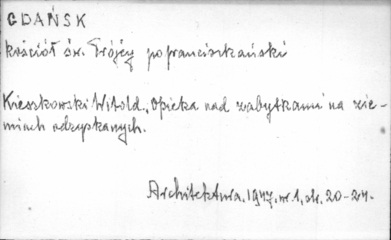 GDAŃSK
kościół św. Trójcy pofranciszkański
Kieszkowski Witold., Opieka nad zabytkami na zie-
miach odzyskanych.
Architektura. 1947, nr. 1, str. 20-24.